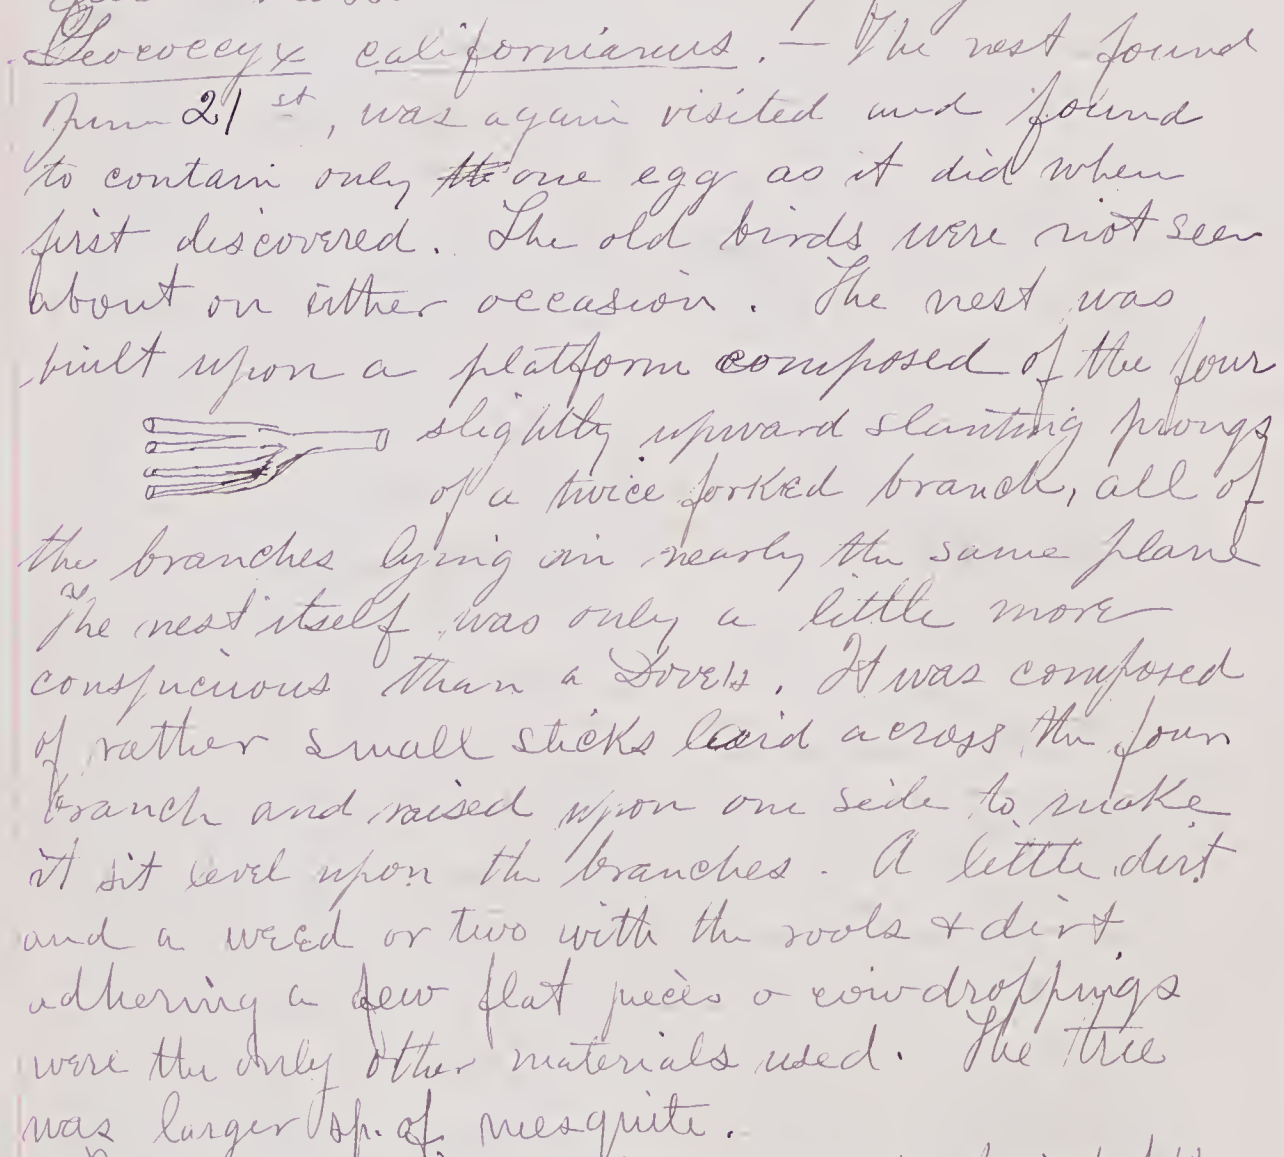 Geococcyx californianus. — The nest found
June 21st, was again visited and found
to contain only one egg as it did when
first discovered. The old birds were not seen
about on either occasion. The nest was
built upon a platform composed of the four
slightly upward slanting prongs
of a twice forked branch, all of
the branches lying in nearly the same plane
The nest itself was only a little more
conspicuous than a Dove's. It was composed
of rather small sticks laid across the four
branch and raised upon one side to make
it sit level upon the branches. A little dirt
and a weed or two with the roots & dirt
adhering a few flat pieces o cow droppings
were the only other materials used. The tree
was larger sp. of mesquite.